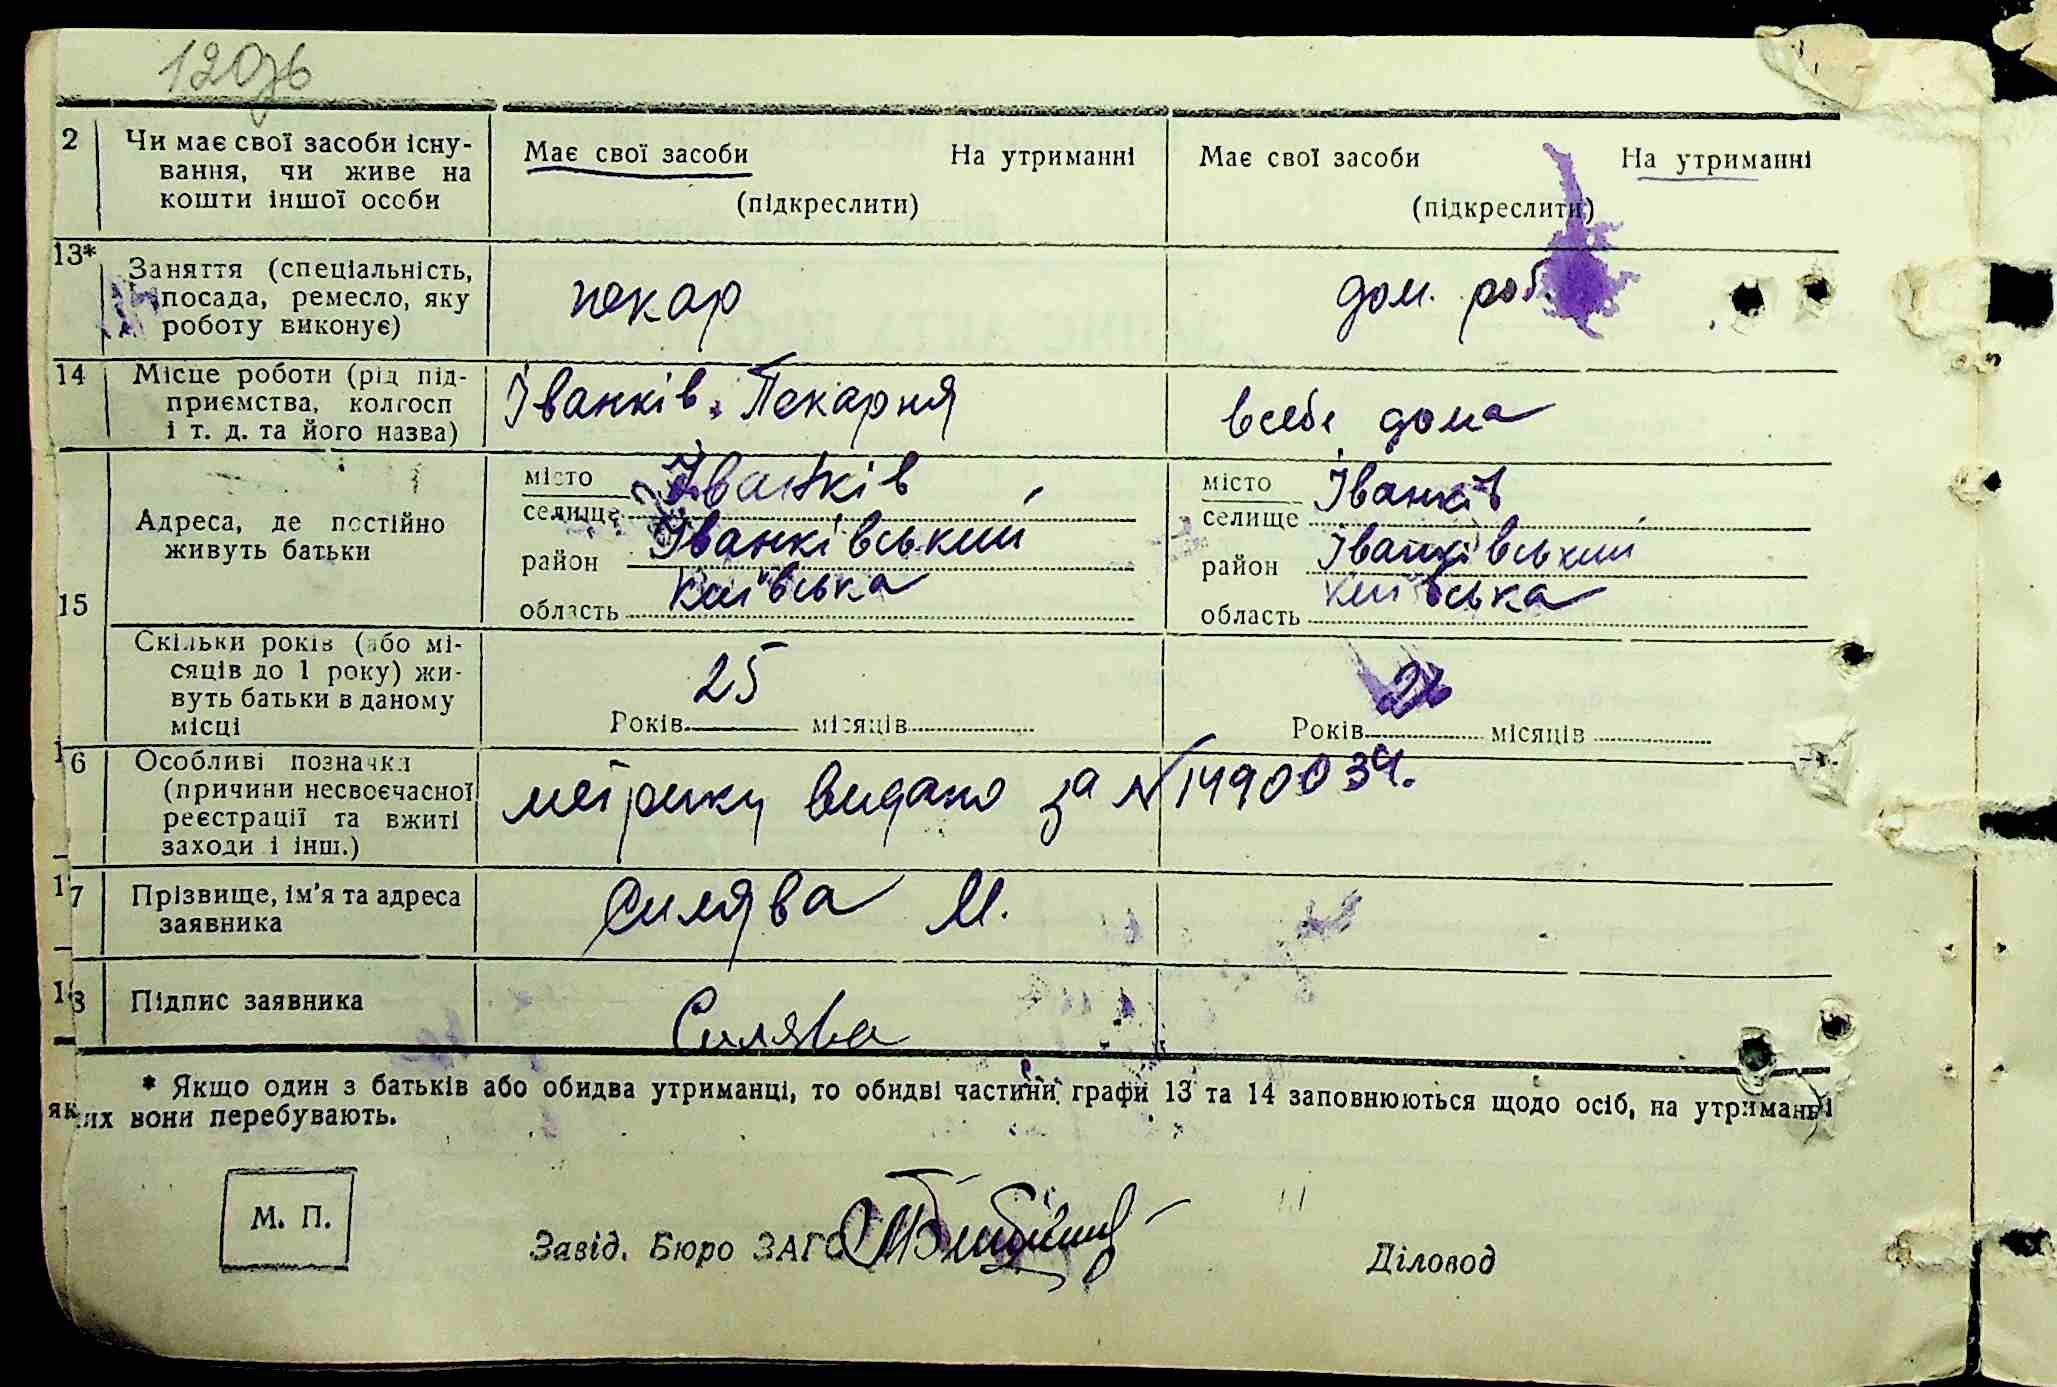 120зв
2 Чи має свої засоби існу-
вання, чи живе на
кошти іншої особи
Має свої засоби На утриманні
(підкреслити)
Має свої засоби На утриманні
(підкреслити)
13* Заняття (спеціальність,
посада, ремесло, яку
роботу виконує)
пекар
дом. роб.
14 Місце роботи (рід під-
приємства, колгосп
і т. д. та його назва)
Іванків. Пекарня
в себе дома
15 Адреса, де постійно
живуть батьки
місто Іванків
селище
район Іванківський
область Київська
місто Іванків
селище
район Іванківський
область Київська
Скільки років (або мі-
сяців до 1 року) жи-
вуть батьки в даному
місці
25
Років місяців
26
Років місяців
16 Особливі позначки
(причини несвоєчасної
реєстрації та вжиті
заходи і інш.)
метрику видано за №
17 Прізвище, ім'я та адреса
заявника
Силява М.
18 Підпис заявника
Силява
* Якщо один з батьків або обидва утриманці, то обидві частини графи 13 та 14 заповнюються щодо осіб, на утриманні
яких вони перебувають.
М. П.
Завід. Бюро ЗАГС
Діловод